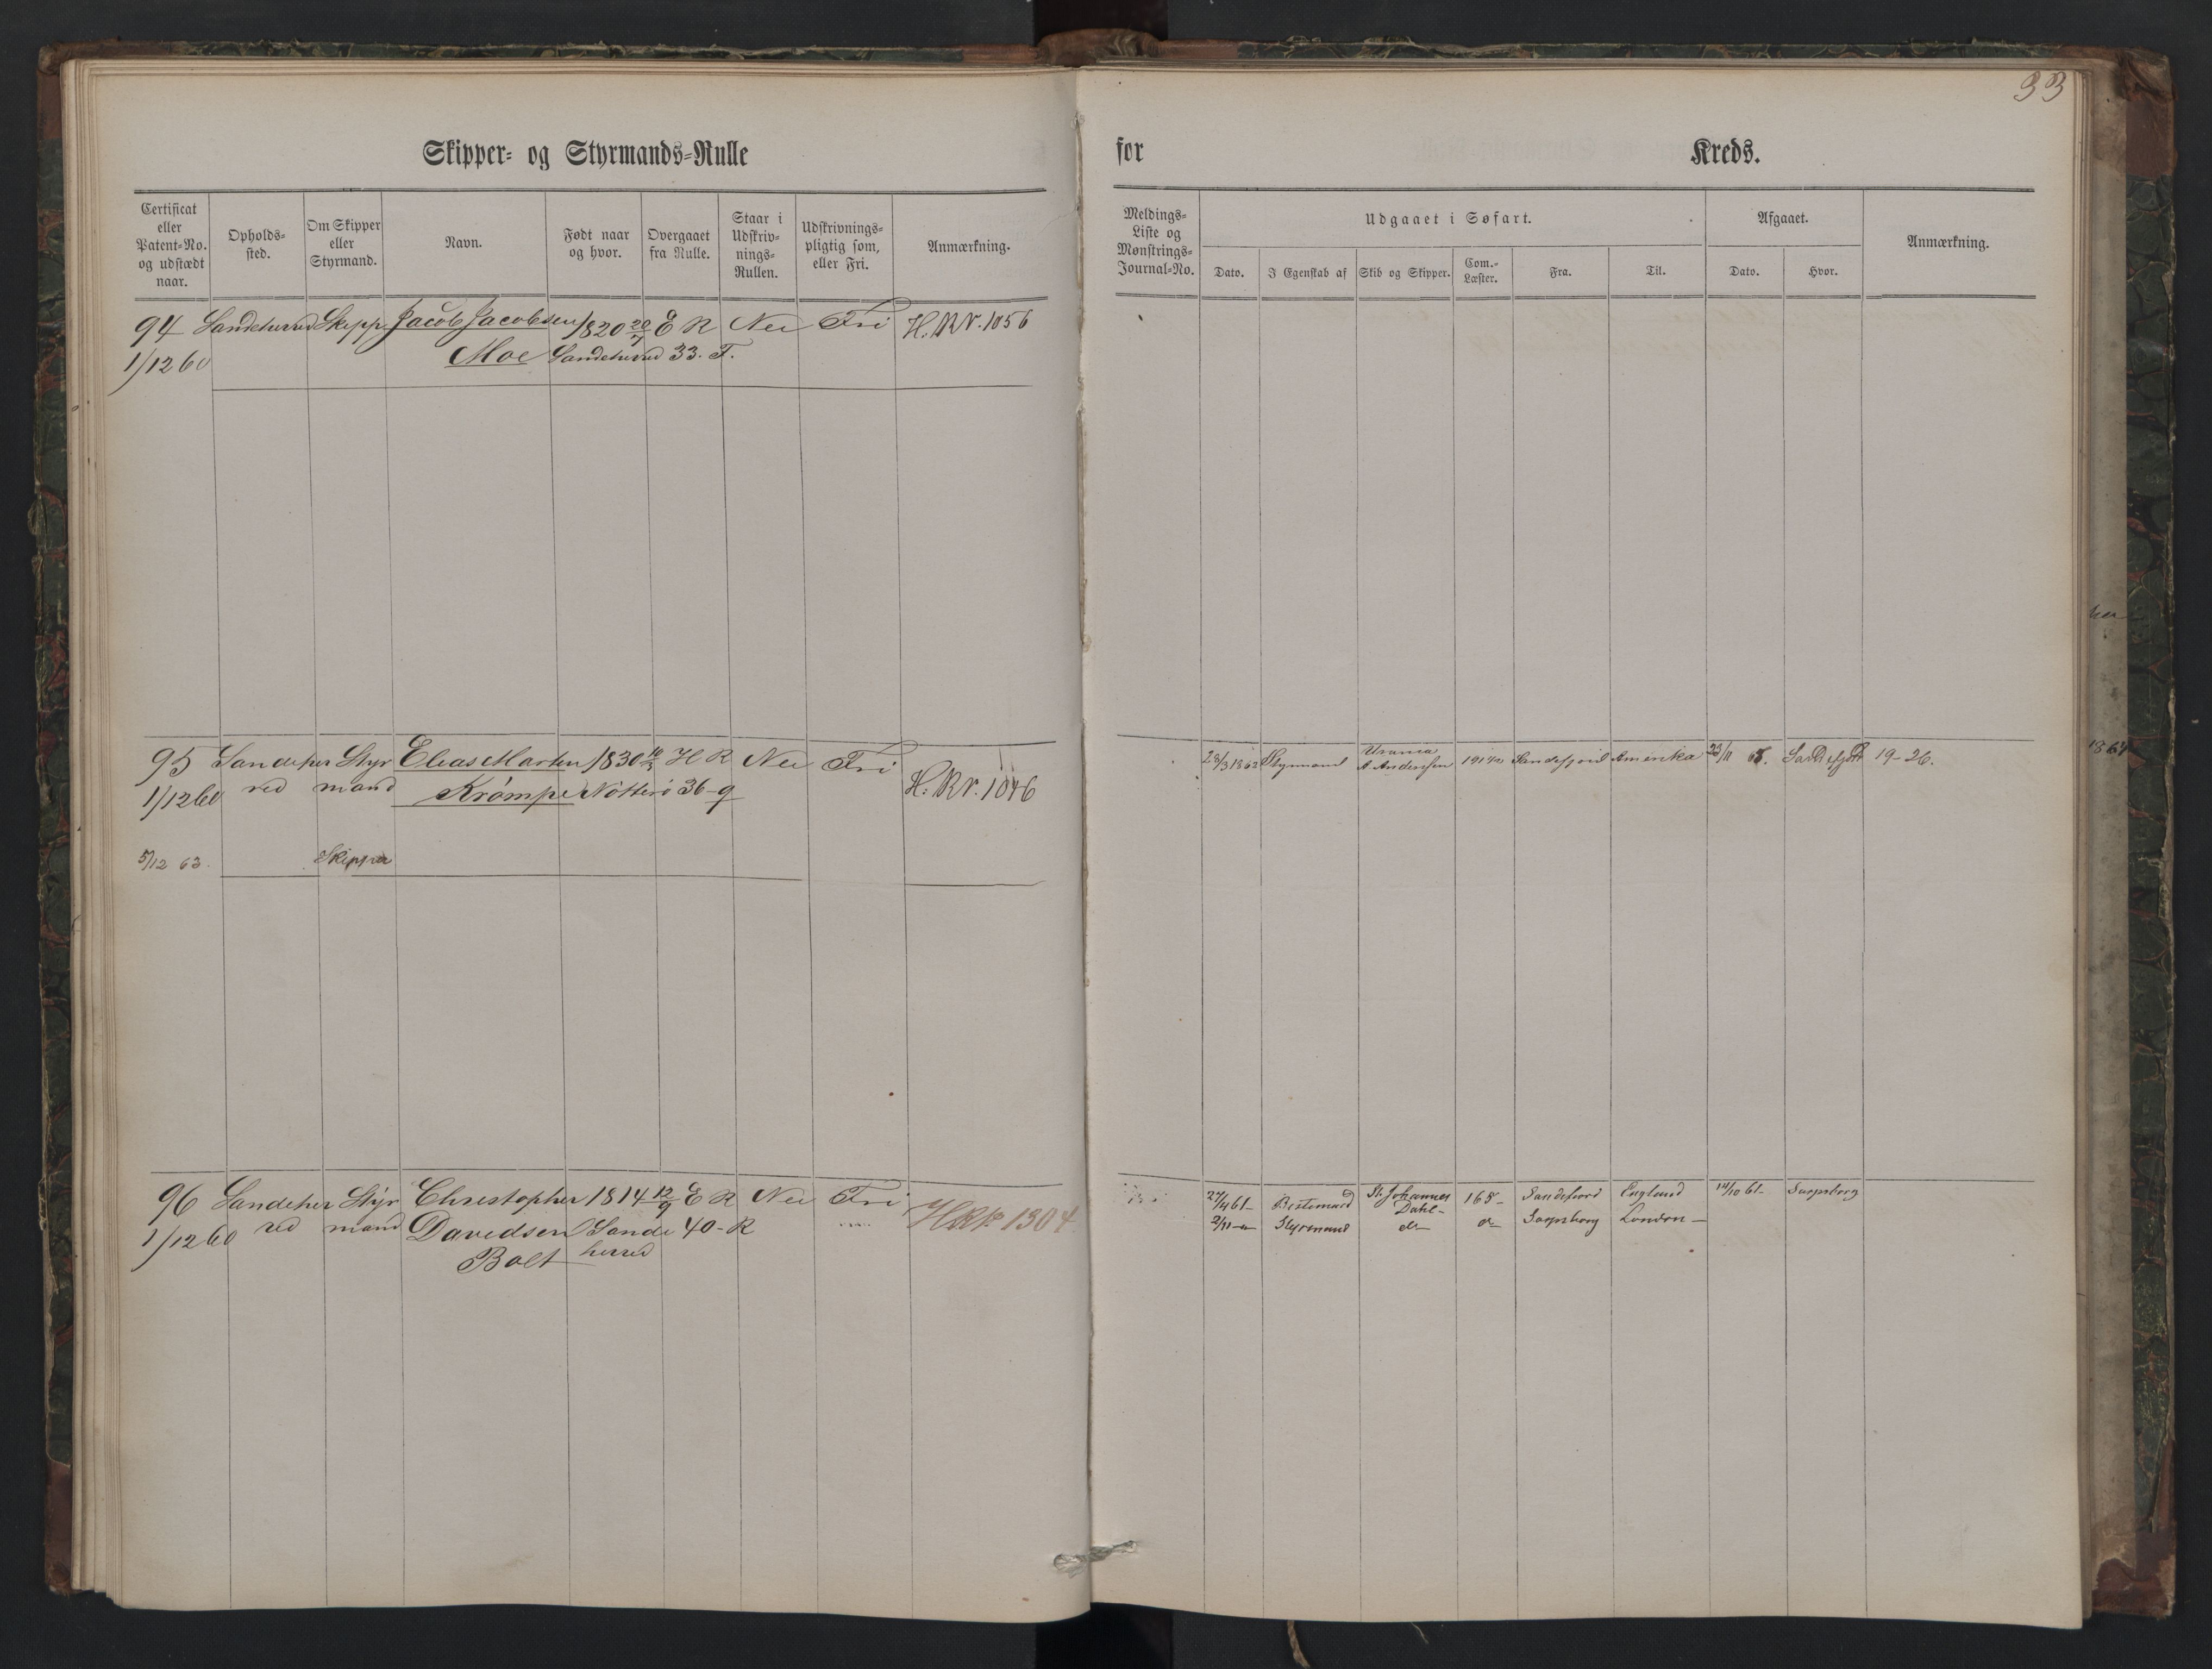 33
Skipper- og Styrmands-Rulle
for Kreds.
Certificat eller Patent-No. og udstædt naar.
Opholds-sted.
Om Skipper eller Styrmand.
Navn.
Født naar og hvor.
Overgaaet fra Rulle.
Staar i Udskriv-nings-Rullen.
Udskrivnings-pligtig som, eller Fri.
Anmærkning.
Meldings-Liste og Mønstrings-Journal-No.
Udgaaet i Søfart.
Afgaaet.
Anmærkning.
Dato.
I Egenskab af
Skib og Skipper.
Com.-Læster.
Fra.
Til.
Dato.
Hvor.
94 Sandeherred Skipp Jacob Jacobsen 1820 20/7 E R Nei Fri H. R N. 1056
1/12 60 Moe Sandeherred 33. F.
95 Sandeher Styr Elias Martin 1830 H R Nei Fri
1/12 60 red mand Krømpe Nötterö 36-9 H. R N. 1046
5/12 63. Skipper
28/3 1862 Styrmand Urania Sandefjord Amerika 23/11 Sandefjord 19-26.
A. Andersen
96 Sandeher Styr Christopher 1814 12/9 E R Nei Fri
1/12 60 red mand Davidsen Sande 40-R 1304
Bolt herred
27/4 61- Bestemand St. Johannes 165- Sandefiord England 14/10 61- Sarpsborg
Dahl-
2/11 - Styrmand do do Sarpsborg London-
1864